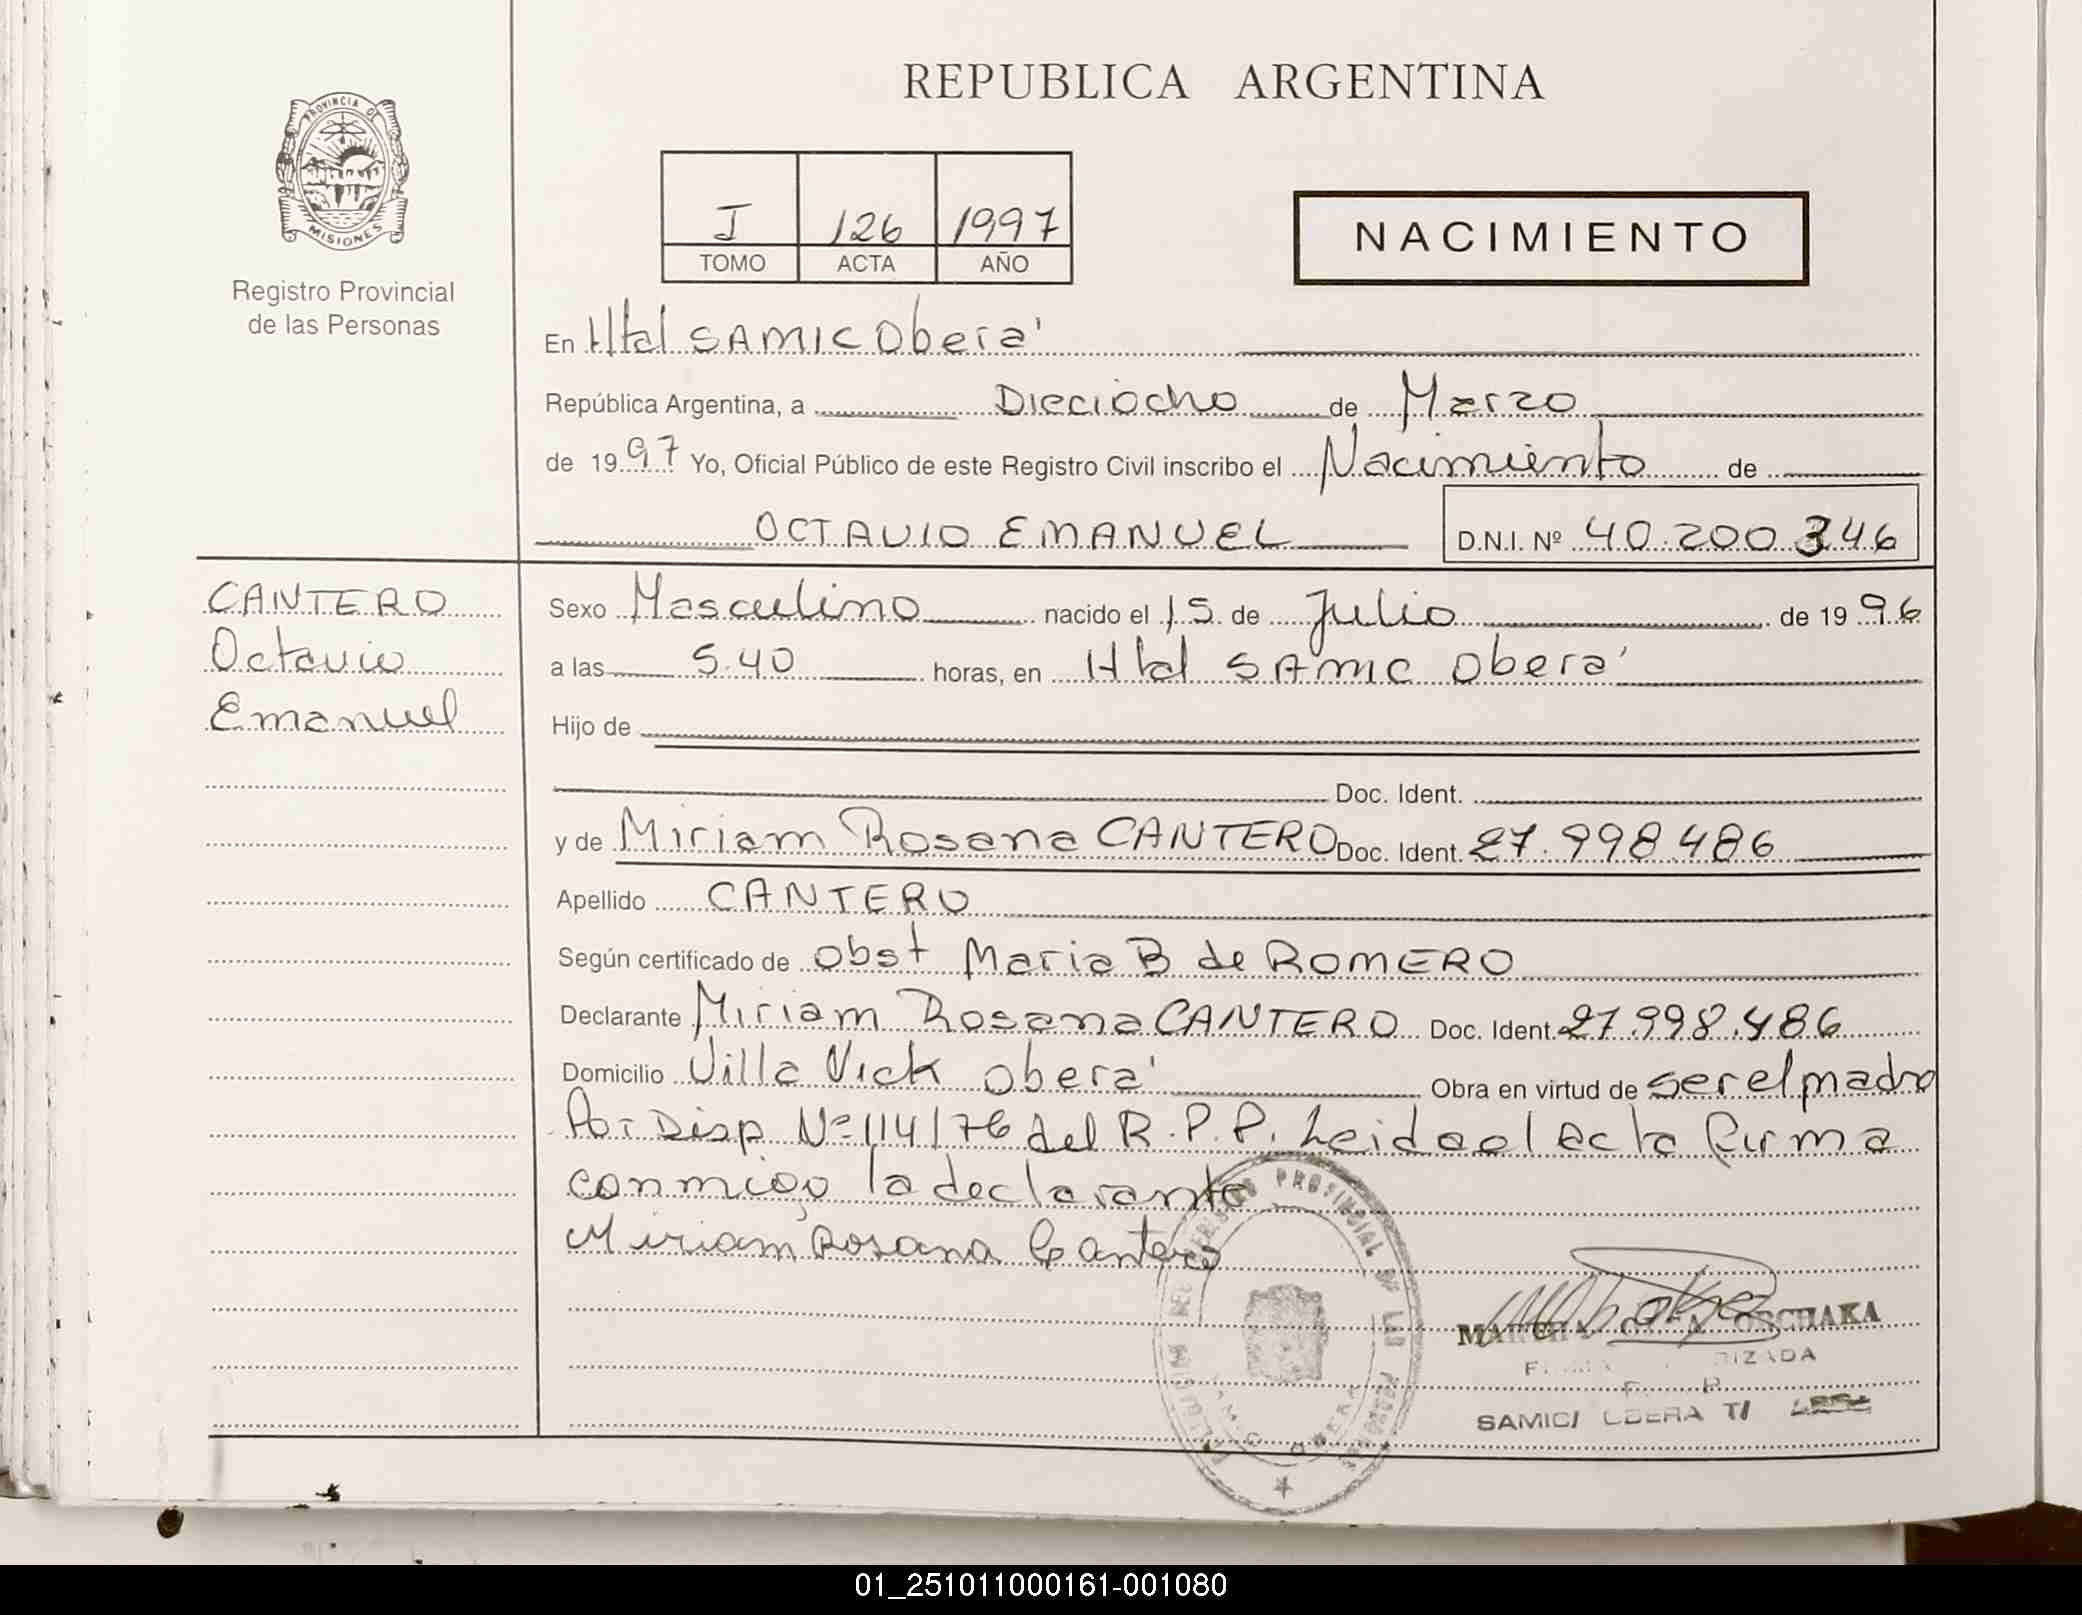 REPUBLICA ARGENTINA
PROVINCIA DE
MISIONES
Registro Provincial
de las Personas
I 126 1997
TOMO ACTA AÑO
NACIMIENTO
En Htal SAMIC Oberá
República Argentina, a Dieciocho de Marzo
de 1997 Yo, Oficial Público de este Registro Civil inscribo el Nacimiento de
OCTAVIO EMANUEL D.N.I. Nº 40.200.346
CANTERO
Octavio
Emanuel
Sexo Masculino nacido el 15 de Julio de 1996
a las 5.40 horas, en Htal SAMIC Oberá
Hijo de
Doc. Ident.
y de Miriam Rosana CANTERO Doc. Ident. 27.998.486
Apellido CANTERO
Según certificado de Obst Maria B de ROMERO
Declarante Miriam Rosana CANTERO Doc. Ident. 27.998.486
Domicilio Villa Vick Oberá Obra en virtud de ser el madre
Por Disp Nº 114/76 del R.P.P. Leida el acta firma
conmigo la declarante
Miriam Rosana Cantero
REGISTRO PROVINCIAL DE LAS PERSONAS
OSCHAKA
SAMIC
01_251011000161-001080